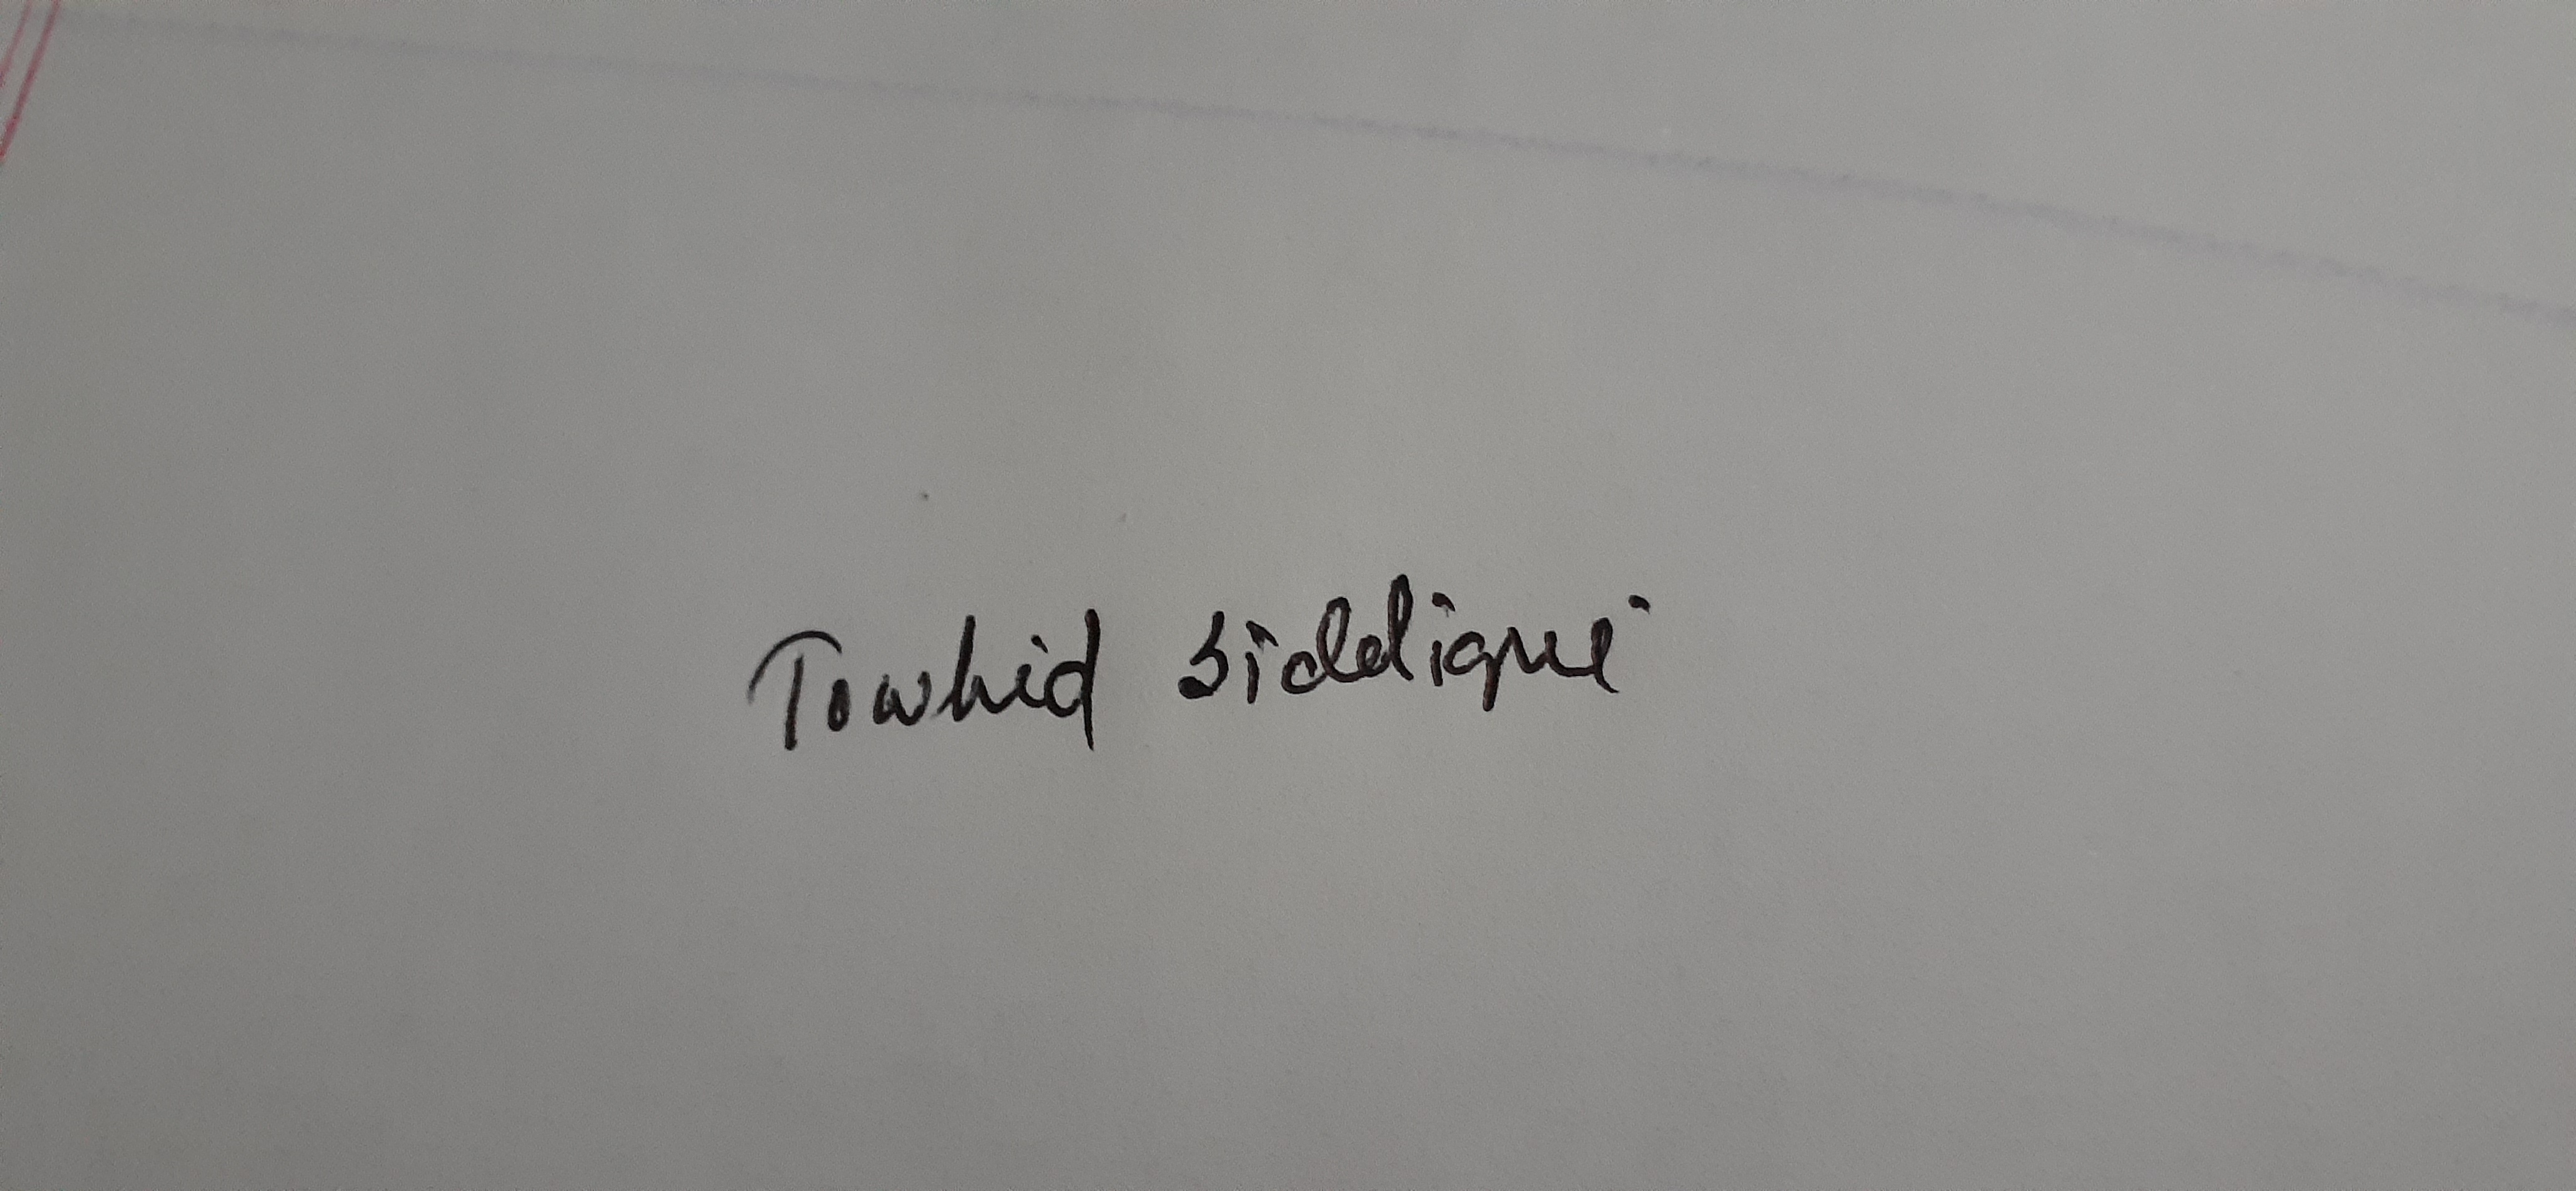 Towhid Siddique